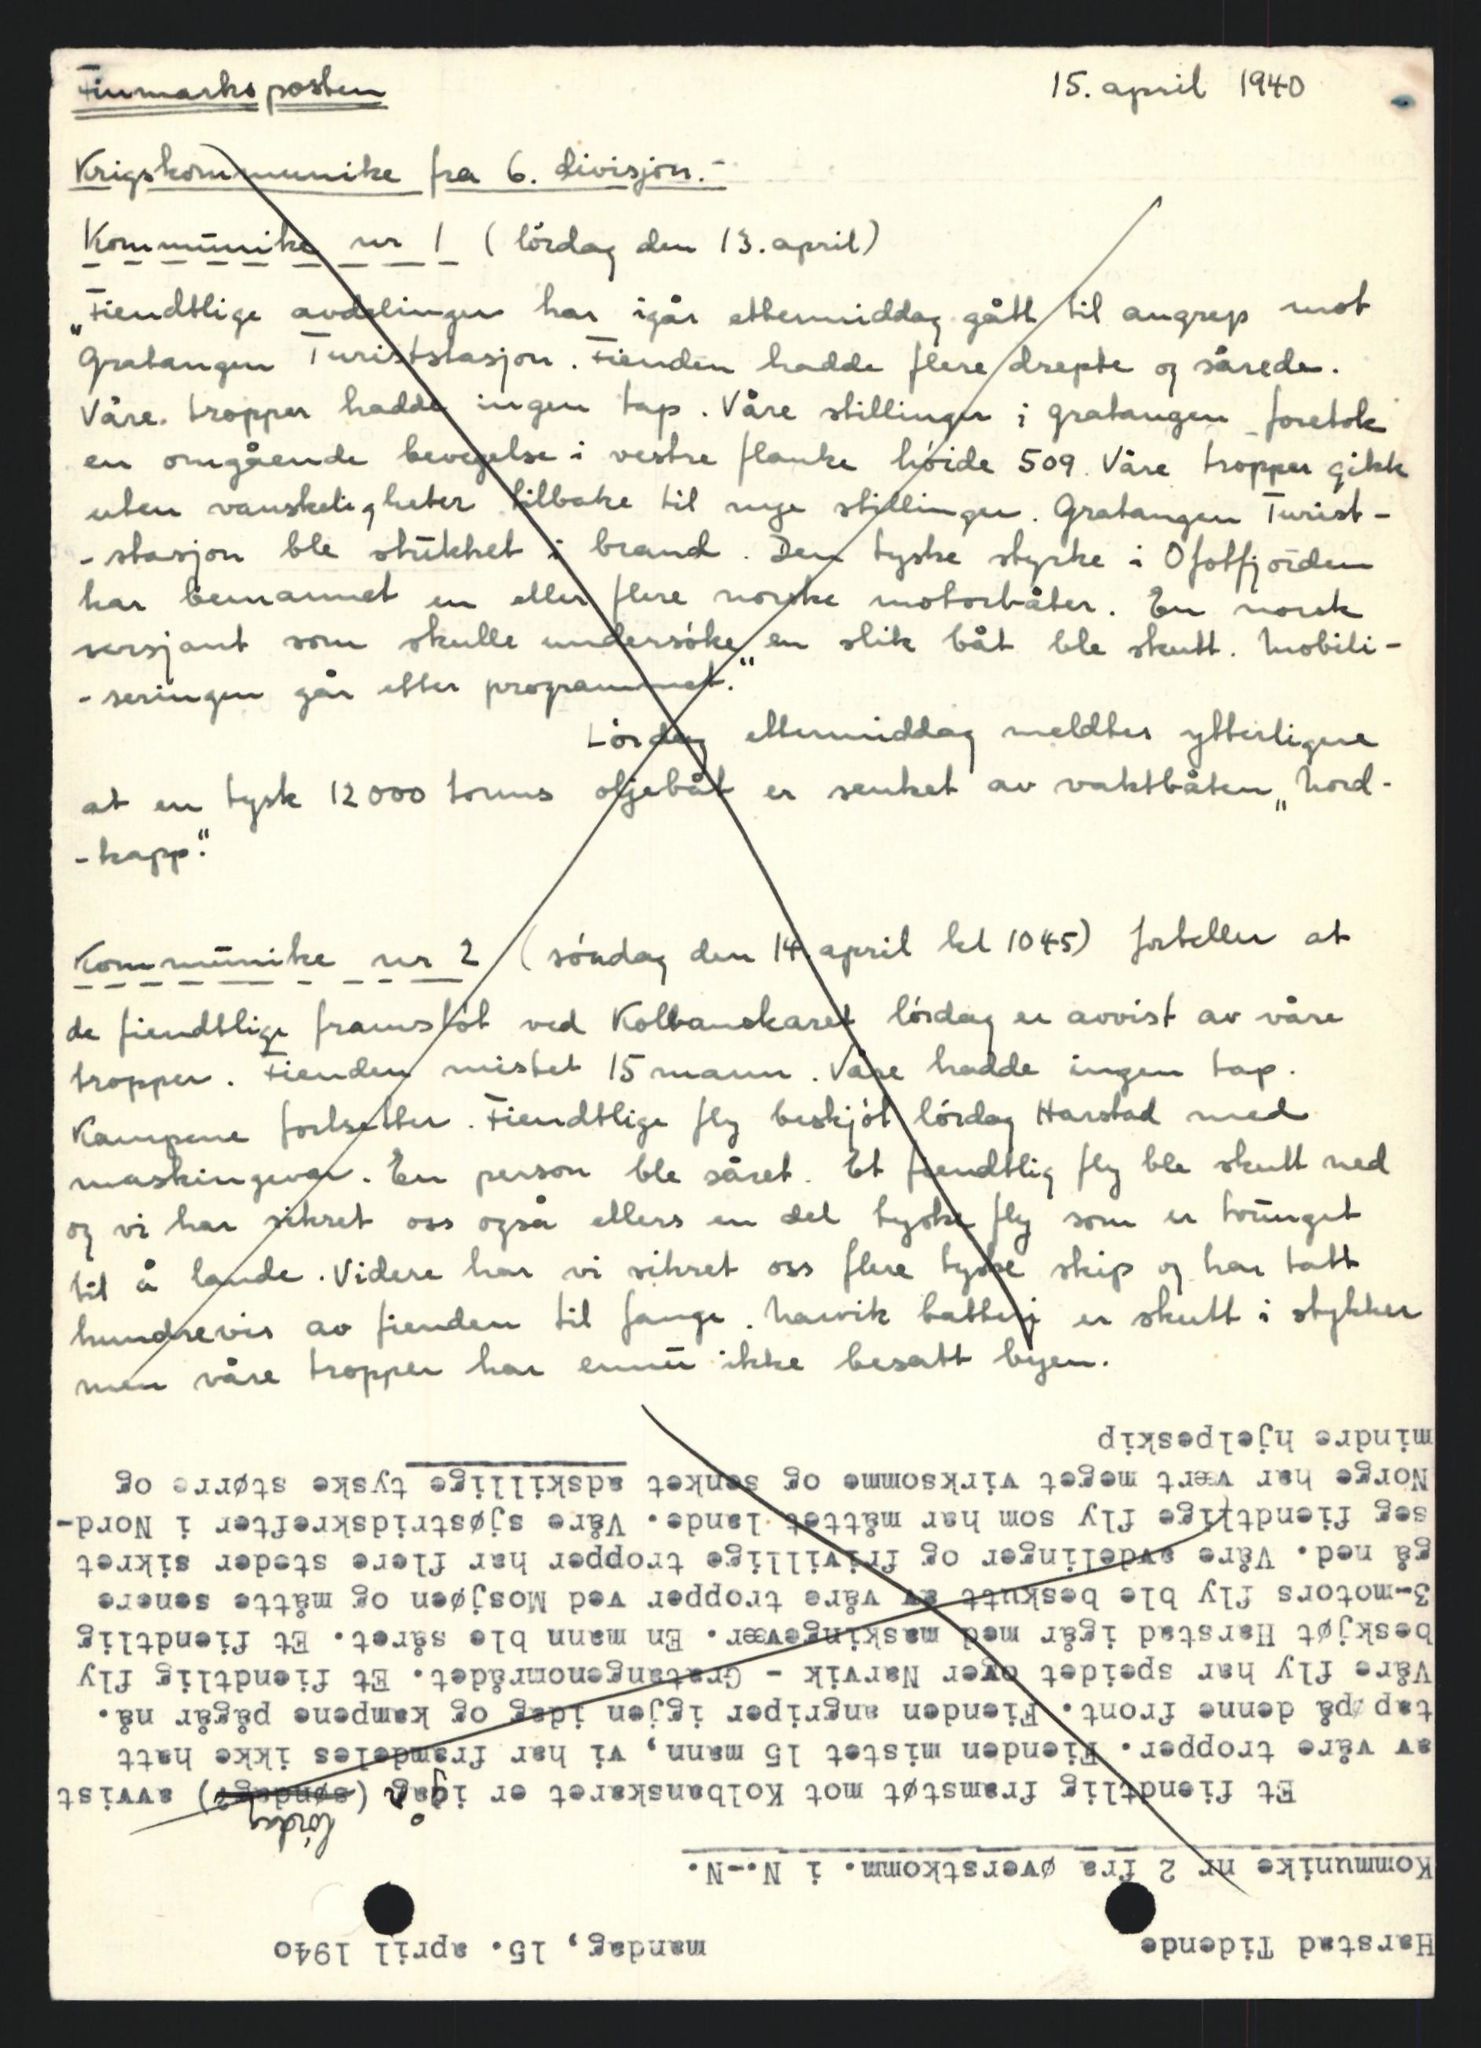 Finmarksposten 15. april 1940
Krigskommunike fra 6. divisjon.-
Kommunike nr 1 (lördag den 13. april)
„Fiendtlige avdelinger har igår ettermiddag gått til angrep mot
Gratangen Turiststasjon. Fienden hadde flere drepte og sårede.
Våre tropper hadde ingen tap. Våre stillinger i Gratangen foretok
en omgående bevegelse i vestre flanke höide 509. Våre tropper gikk
uten vanskeligheter tilbake til nye stillinger. Gratangen Turist-
-stasjon ble stukket i brand. Den tyske styrke i Ofotfjorden
har bemannet en eller flere norske motorbåter. En norsk
sersjant som skulle undersöke en slik båt ble skutt. Mobili-
-seringen går etter programmet.“
Lördag ettermiddag meldtes ytterligere
at en tysk 12000 tonns oljebåt er senket av vaktbåten „Nord-
-kapp“.
Kommunike nr 2 (söndag den 14. april kl 1045) forteller at
de fiendtlige framstöt ved Kolbanskaret lördag er avvist av våre
tropper. Fienden mistet 15 mann. Våre hadde ingen tap.
Kampene fortsetter. Fiendtlige fly beskjöt lördag Harstad med
maskingevær. En person ble såret. Et fiendtlig fly ble skutt ned
og vi har sikret oss også ellers en del tyske fly som er tvunget
til å lande. Videre har vi sikret oss flere tyske skip og har tatt
hundrevis av fienden til fange. Narvik batteri er skutt i stykker
men våre tropper har ennu ikke besatt byen.
Harstad Tidende mandag, 15. april 1940
Kommunike nr 2 fra øverstkomm. i N.-N.
lördag
Et fiendtlig framstøt mot Kolbanskaret er igår (søndag?) avvist
av våre tropper. Fienden mistet 15 mann, vi har framdeles ikke hatt
tap på denne front. Fienden angriper igjen idag og kampene pågår nå.
Våre fly har speidet over Narvik - Gratangenområdet. Et fiendtlig fly
beskjøt Harstad igår med maskingevær. En mann ble såret. Et fiendtlig
3-motors fly ble beskutt av våre tropper ved Mosjøen og måtte senere
gå ned. Våre avdelinger og frivillige tropper har flere steder sikret
seg fiendtlige fly som har måttet lande. Våre sjøstridskrefter i Nord-
Norge har vært meget virksomme og senket adskillige tyske større og
mindre hjelpeskip